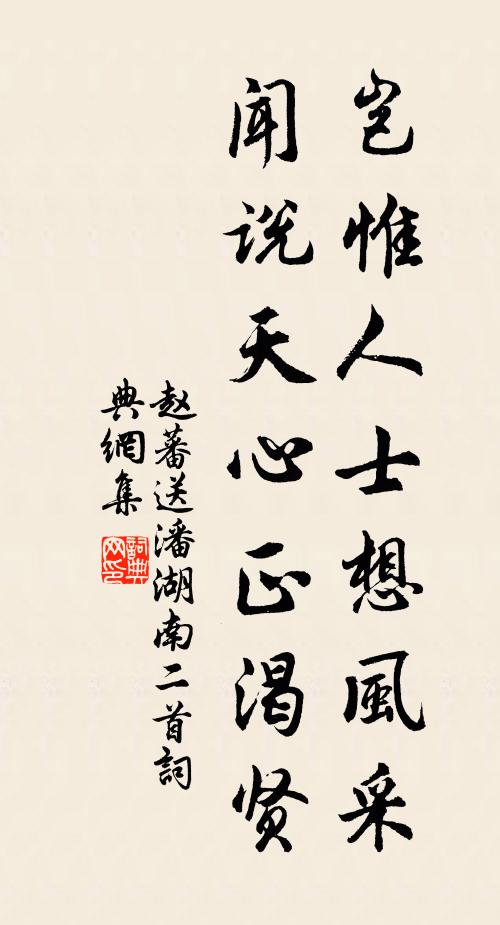 岂惟人士想風采
闻説天心正渴贤
赵蕃送潘湖南二首詞
典網集
詞典网印